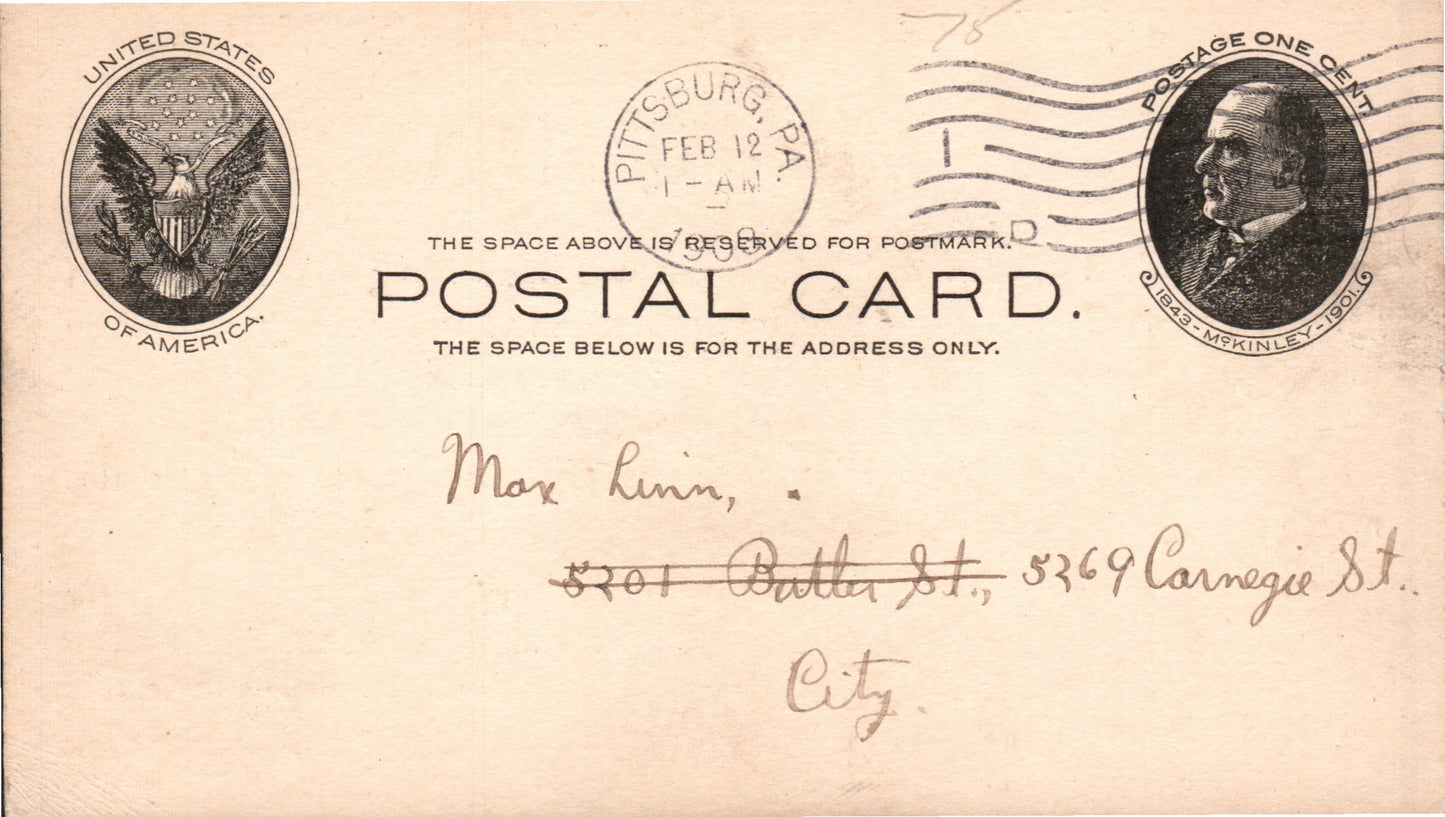 75
UNITED STATES
OF AMERICA.
PITTSBURG, PA.
FEB 12
1-AM
I
D
POSTAGE ONE CENT.
1843-McKINLEY-1901.
THE SPACE ABOVE IS RESERVED FOR POSTMARK.
POSTAL CARD.
THE SPACE BELOW IS FOR THE ADDRESS ONLY.
Max Linn,
5201 Butler St., 5269 Carnegie St.
City.